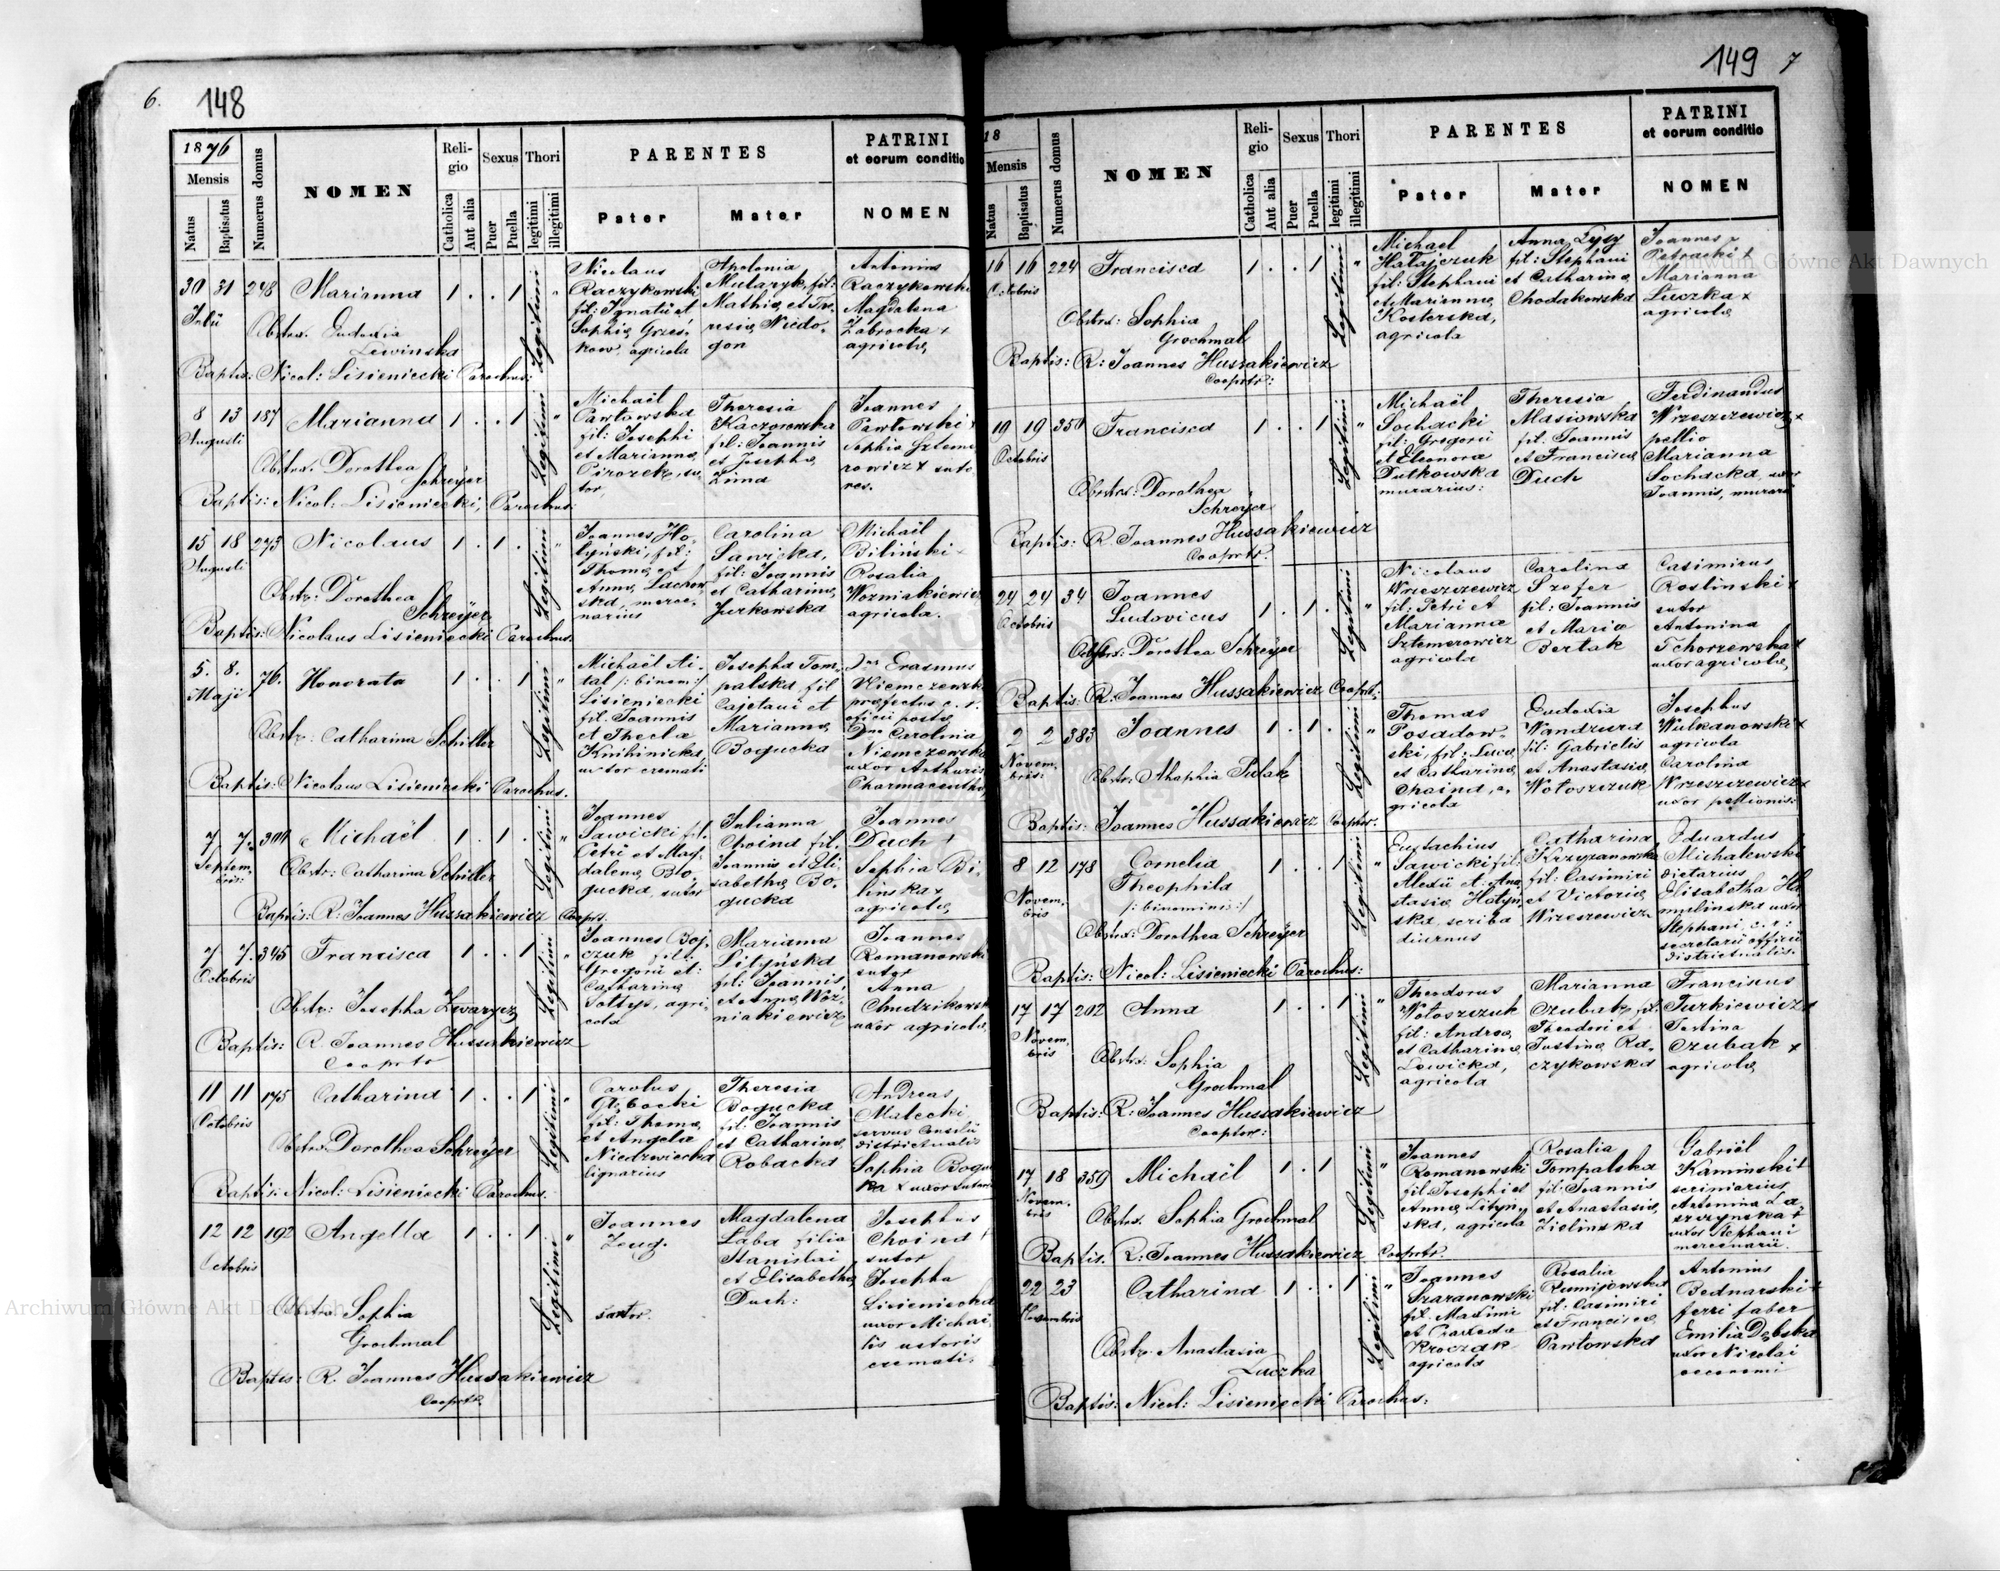 6. 148
1876
Mensis
Natus
Baptisatus
Numerus domus
NOMEN
Religio
Catholica
Aut alia
Sexus
Puer
Puella
Thori
legitimi
illegitimi
PARENTES
Pater
Mater
PATRINI
et eorum conditio
NOMEN
30 31 248 Marianna 1 . . 1 Legitimi "
Julii
Obstrx. Eudoxia
Lewinska
Baptis: Nicol: Lisieniecki Parochus:
Nicolaus
Raczykowski
fil: Ignatii et
Sophiæ Grzes-
kow, agricola
Apolonia
Mularyk, fil:
Mathiæ et The-
resiæ Niedo-
gon
Antonius
Raczykowski
Magdalena
Zabrocka +
agricolæ
8 13 187 Marianna 1 . . 1 Legitimi "
Augusti
Obstrx. Dorothea
Schreyer
Baptis: Nicol: Lisieniecki, Parochus:
Michaël
Pawłowski
fil: Josephi
et Mariannæ
Pirozek, su-
tor,
Theresia
Kaczorowska
fil: Joannis
et Josephæ
Zima
Joannes
Pawłowski +
Sophia Szteme-
rowicz + suto-
res.
15 18 273 Nicolaus 1 . 1 . Legitimi "
Augusti
Obstr: Dorothea
Schreyer
Baptis: Nicolaus Lisieniecki Parochus.
Joannes Ho-
łyński, fil:
Thomæ et
Annæ Lachow-
ska, merce-
narius
Carolina
Sawicka,
fil: Joannis
et Catharinæ
Jurkowska
Michaël
Biliński +
Rosalia
Wozniakiewicz
agricola.
5. 8. 76. Honorata 1 . . 1 Legitimi "
Maji
Obstr: Catharina Schiller
Baptis: Nicolaus Lisieniecki Parochus.
Michaël Vi-
tal /: binom:/
Lisieniecki
fil: Joannis
et Thecla
Knihinicka,
ustor cremati
Josepha Tom-
palska fil
Cajetani et
Mariannæ
Bogucka
Dns Erasmus
Niemczewski
præfectus c. r.
officii postæ
Dna Carolina
Niemczewska
uxor Arthuris
Pharmaceuthæ
7 7. 304 Michaël 1 . 1 . Legitimi "
Septem-
bris:
Obstr: Catharina Schiller
Baptis: R. Joannes Hussakiewicz Cooprt.
Joannes
Sawicki fil.
Petri et Mag-
dalenæ Bo-
gucka, sutor
Julianna
Choina fil.
Joannis et Eli-
sabethæ Bo-
gucka
Joannes
Duch +
Sophia Bi-
linska +
agricolæ
7 7. 345 Francisca 1 . . 1 Legitimi "
Octobris
Obstr: Josepha Zwarycz
Baptis: R Joannes Hussakiewicz
Cooprtr
Joannes Boj-
czuk fil:
Gregorii et
Catharinæ
Sołtys, agri-
cola
Marianna
Lityńska
fil: Joannis
et Annæ Woz-
niakiewicz
Joannes
Romanowski
sutor
Anna
Chudzikowska
uxor agricolæ
11 11 175 Catharina 1 . . 1 Legitimi "
Octobris
Obstrx: Dorothea Schreyer
Baptis: Nicol: Lisieniecki Parochus:
Carolus
Głębocki
fil: Thomæ
et Angela
Niedzwiecka
lignarius
Theresia
Bogucka
fil: Joannis
et Catharinæ
Robacka
Andreas
Małecki
servus Consilii
districtualis
Sophia Bogu-
ka + uxor sutoris
12 12 192 Angella 1 . . 1 Legitimi "
Octobris
Obstrx. Sophia
Grochmal
Baptis: R. Joannes Hussakiewicz
Cooprtr
Joannes
Zeug.
sartor.
Magdalena
Laba filia
Stanislai
et Elisabethæ
Duch:
Josephus
Choina +
sutor
Josepha
Lisieniecka
uxor Michaë-
lis ustoris
cremati.
149 7
18
Mensis
Natus
Baptisatus
Numerus domus
NOMEN
Religio
Catholica
Aut alia
Sexus
Puer
Puella
Thori
legitimi
illegitimi
PARENTES
Pater
Mater
PATRINI
et eorum conditio
NOMEN
16 16 224 Francisca 1 . . 1 Legitimi "
Octobris
Obstrx: Sophia
Grochmal
Baptis: R: Joannes Hussakiewicz
Cooprtr:
Michaël
Hałajczuk
fil: Stephani
et Mariannæ
Kosterska,
agricola
Anna Łysy
fil: Stephani
et Catharinæ
Chodakowska
Joannes
Petracki +
Marianna
Łuczka +
agricolæ
19 19 350 Francisca 1 . . 1 Legitimi "
Octobris
Obstrx: Dorothea
Schreyer
Baptis: R. Joannes Hussakiewicz
Cooprtr.
Michaël
Sochacki
fil: Gregorii
et Eleonora
Dutkowska
murarius:
Theresia
Masiowska
fil: Joannis
et Franciscæ
Duch
Ferdinandus
Wrzeszczewicz +
pellio
Marianna
Sochacka, uxor
Joannis, murarii
24 24 34 Joannes
Ludovicus 1 . 1 . Legitimi "
Octobris
Obstrx: Dorothea Schreyer
Baptis: R. Joannes Hussakiewicz Cooprt:
Nicolaus
Wrzeszczewicz
fil: Petri et
Mariannæ
Sztemerowicz
agricola
Carolina
Szefer
fil: Joannis
et Mariæ
Bertak
Casimirus
Roslinski +
sutor
Antonina
Tchorzewska +
uxor agricolæ
2 2 383 Joannes 1 . 1 . Legitimi "
Novem-
bris:
Obstr. Ahaphia Sulak
Baptis: Joannes Hussakiewicz Cooprtr.
Thomas
Posadow-
ski, fil: Lucæ
et Catharinæ
Choina, a-
gricola
Eudoxia
Wandzura
fil: Gabrielis
et Anastasiæ
Wołoszczuk
Josephus
Wulkanowski +
agricola
Carolina
Wrzeszczewicz +
uxor pellionis:
8 12 178 Cornelia
Theophila
/: binominis :/ 1 . . 1 Legitimi "
Novem-
bris
Obstrx: Dorothea Schreyer
Baptis: Nicol: Lisieniecki Parochus:
Eustachius
Sawicki fil:
Alexii et Ana-
stasiæ Hołyn-
ska, scriba
diurnus
Catharina
Krzyzanowska
fil: Casimiri
et Victoriæ
Wrzeszewicz
Eduardus
Michalewski
dietarius
Elisabetha Ha-
mulinska uxor
Stephani c. r:
secretarii officii
districtualis.
17 17 202 Anna 1 . . 1 Legitimi "
Novem-
bris
Obstrx: Sophia
Grochmal
Baptis: R: Joannes Hussakiewicz
Cooptor:
Theodorus
Wołoszczuk
fil: Andreæ
et Catharinæ
Lewicka,
agricola
Marianna
Czubak, fil:
Theodori et
Justinæ Ra-
czykowska
Franciscus
Turkiewicz +
Justina
Czubak +
agricolæ
17 18 359 Michaël 1 . 1 . Legitimi "
Novem-
bris
Obstrx. Sophia Grochmal
Baptis. R: Joannes Hussakiewicz Cooprtr.
Joannes
Romanowski
fil: Josephi et
Annæ Lityn-
ska, agricola
Rosalia
Tompalska
fil: Joannis
et Anastasiæ
Zielinska
Gabriël
Kaminski +
scriniarius
Antonina La-
szczynska +
uxor Stephani
mercenarii.
22 23 Catharina 1 . . 1 Legitimi "
Novembris
Obstr. Anastasia
Łuczka
Baptis: Nicol: Lisieniecki Parochus:
Joannes
Szaranowski
fil: Maximi
et Praxeda
Kroczak
agricola
Rosalia
Remijowska
fil: Casimiri
et Franciscæ
Pawłowska
Antonius
Bednarski +
ferri faber
Emilia Dębska
uxor Nicolai
oeconomi
Archiwum Główne Akt Dawnych
Archiwum Główne Akt Dawnych